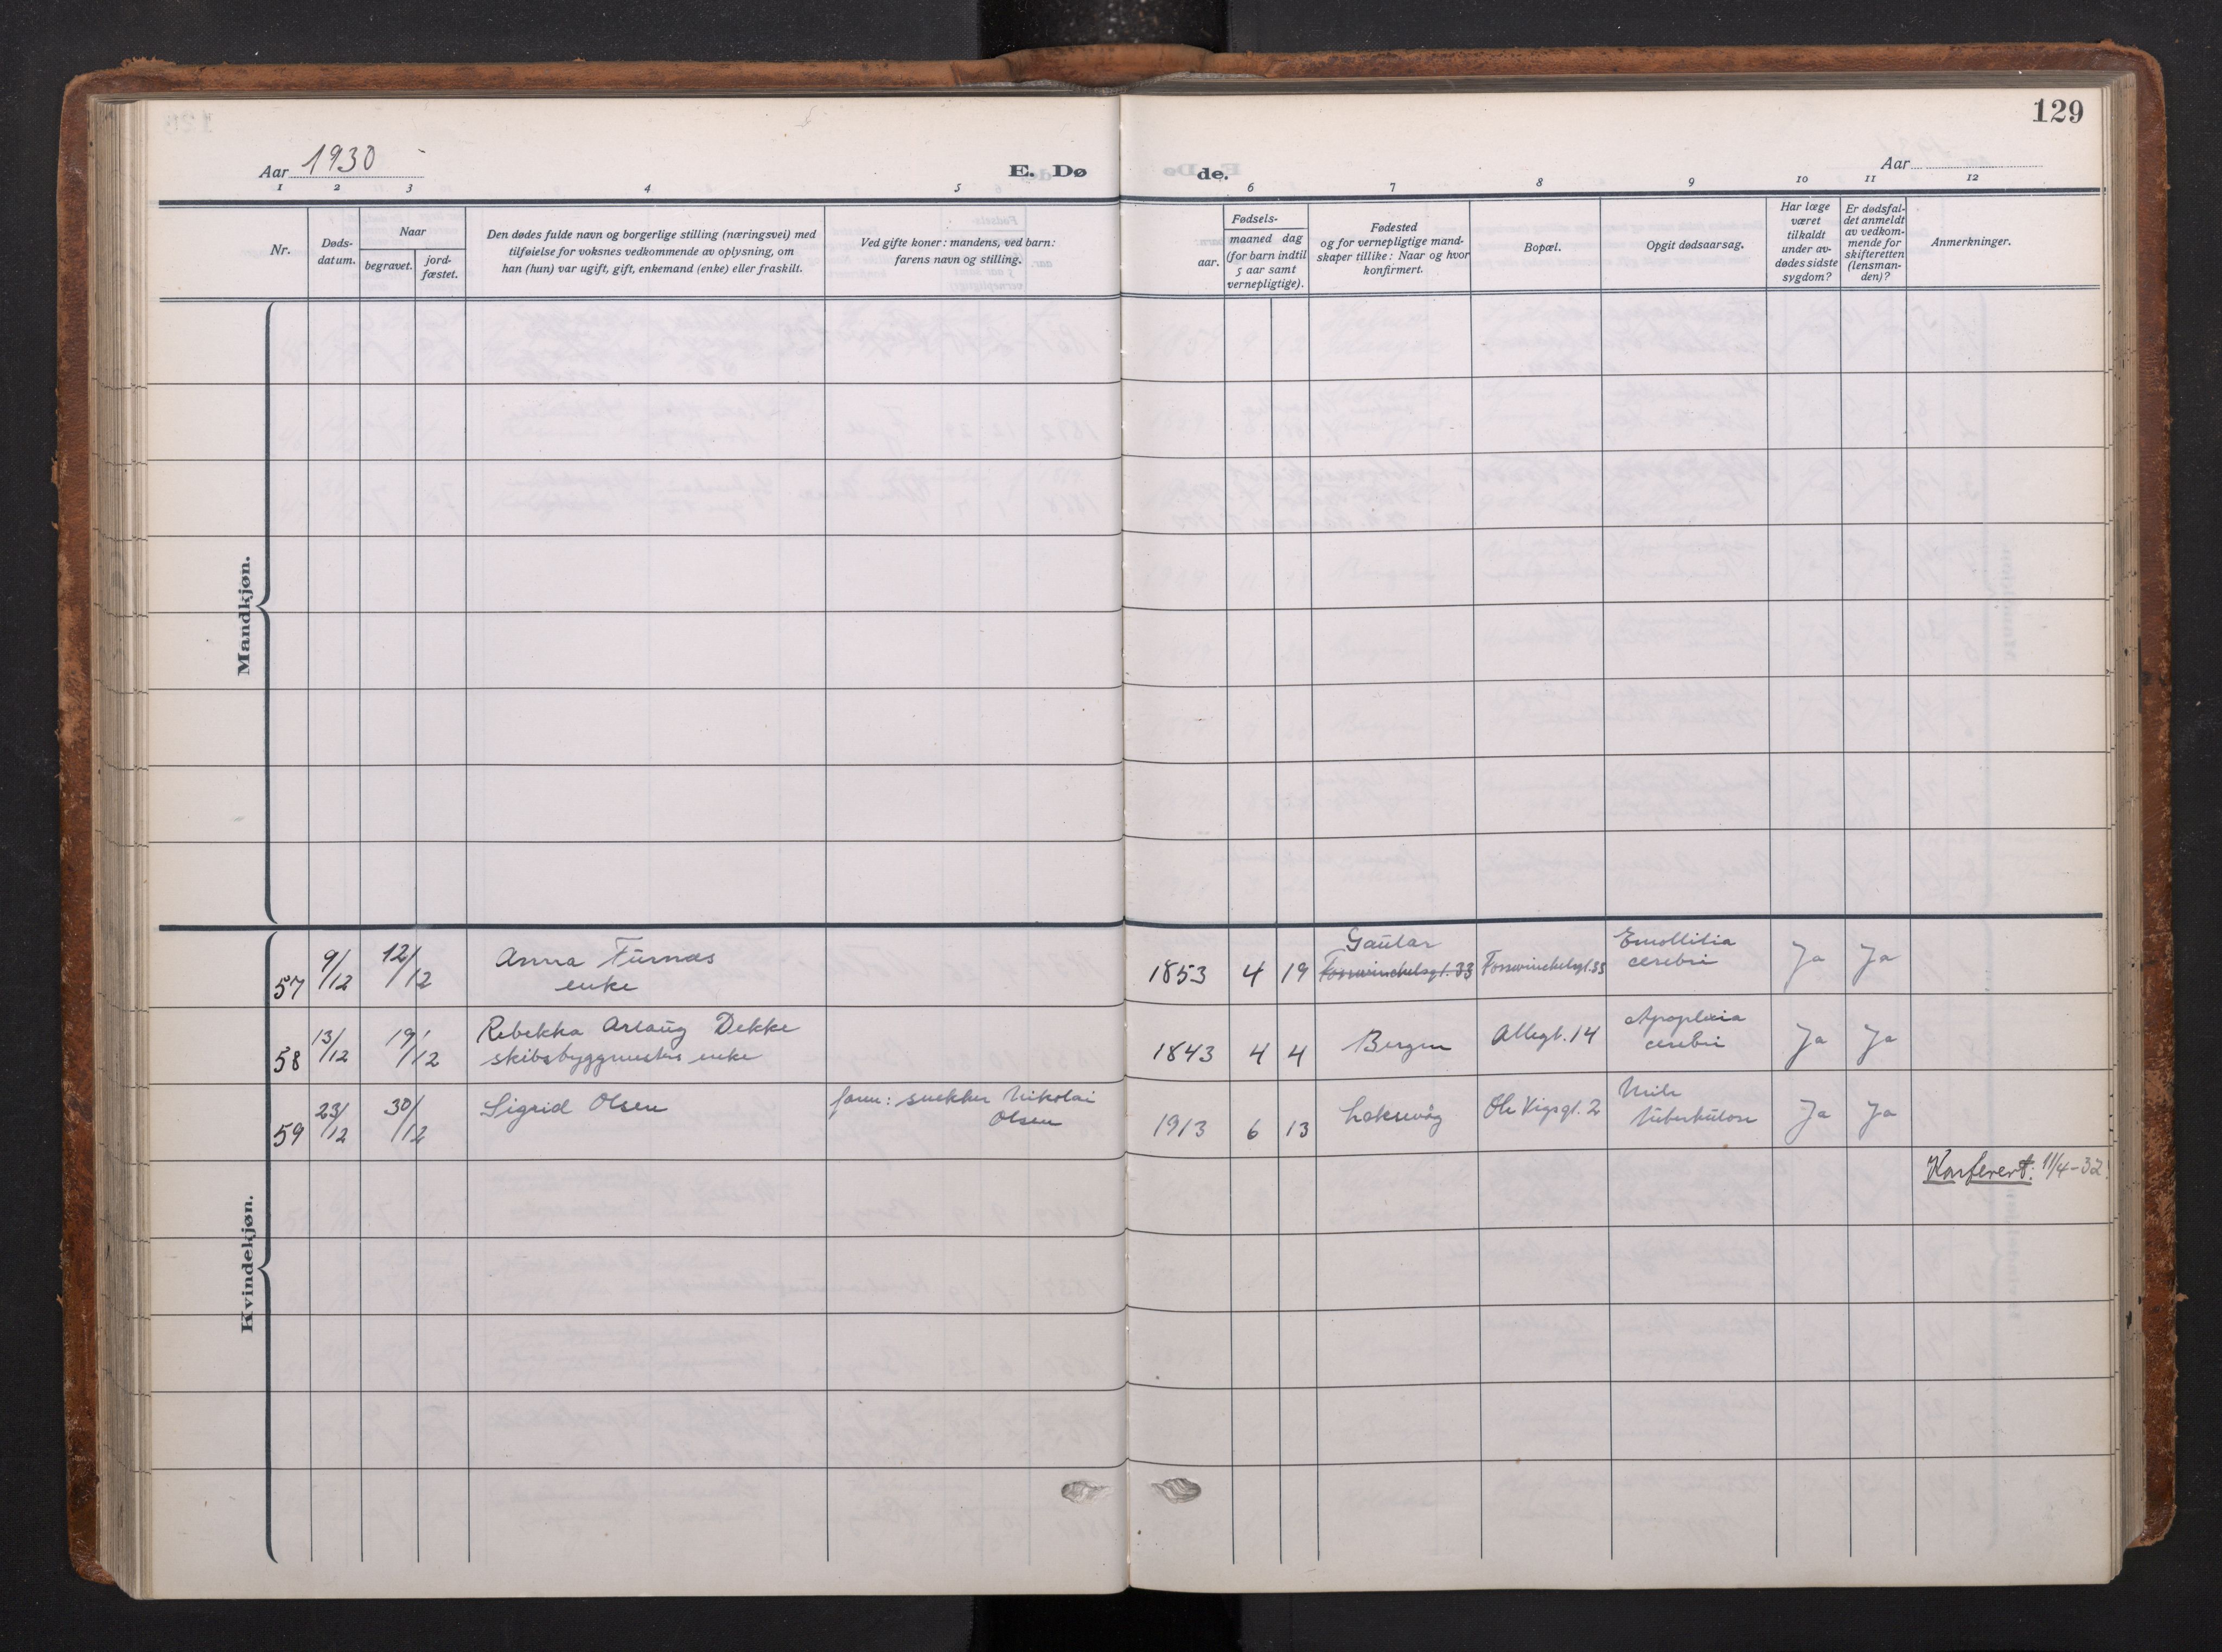 129
Aar 1930
E. Dø
de.
Aar
1 2 3 4 5 6 7 8 9 10 11 12
Nr.
Døds-
datum.
Naar
begravet.
jord-
fæstet.
Den dødes fulde navn og borgerlige stilling (næringsvei) med
tilføielse for voksnes vedkommende av oplysning, om
han (hun) var ugift, gift, enkemand (enke) eller fraskilt.
Ved gifte koner: mandens, ved barn:
farens navn og stilling.
Fødsels-
aar.
maaned dag
(for barn indtil
5 aar samt
vernepligtige).
Fødested
og for vernepligtige mand-
skaper tillike: Naar og hvor
konfirmert.
Bopæl.
Opgit dødsaarsag.
Har læge
været
tilkaldt
under av-
dødes sidste
sygdom?
Er dødsfal-
det anmeldt
av vedkom-
mende for
skifteretten
(lensman-
den)?
Anmerkninger.
Mandkjøn.
Kvindekjøn.
57 9/12 12/12 Anna Furnas
enke
1853 4 19 Gaular
Fosswinckelsgt. 33
Fosswinckelsgt. 33
Emollitia
cerebri
Ja Ja
58 13/12 19/12 Rebekka Aslaug Dekke
skibsbyggmesters enke
1843 4 4 Bergen Allegt. 14
Apoplexia
cerebri
Ja Ja
59 23/12 30/12 Sigrid Olsen
farm: snekker Nikolai
Olsen
1913 6 13 Laksevåg Ole Vigsgt. 2
tuberkulose
Ja Ja
Konferert: 11/4-32.